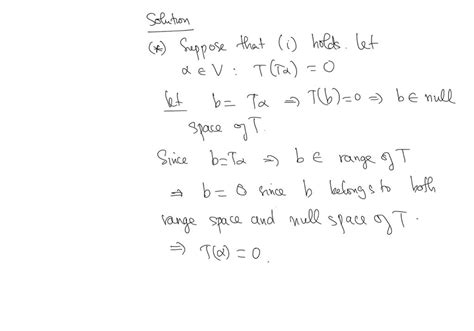 Solution
(*) Suppose that (i) holds. Let
α ∈ V : T(Tα) = 0
Let b = Tα ⇒ T(b)=0 ⇒ b ∈ null
space of T.
Since b=Tα ⇒ b ∈ range of T
⇒ b = 0 since b belongs to both
range space and null space of T.
⇒ T(α) = 0.